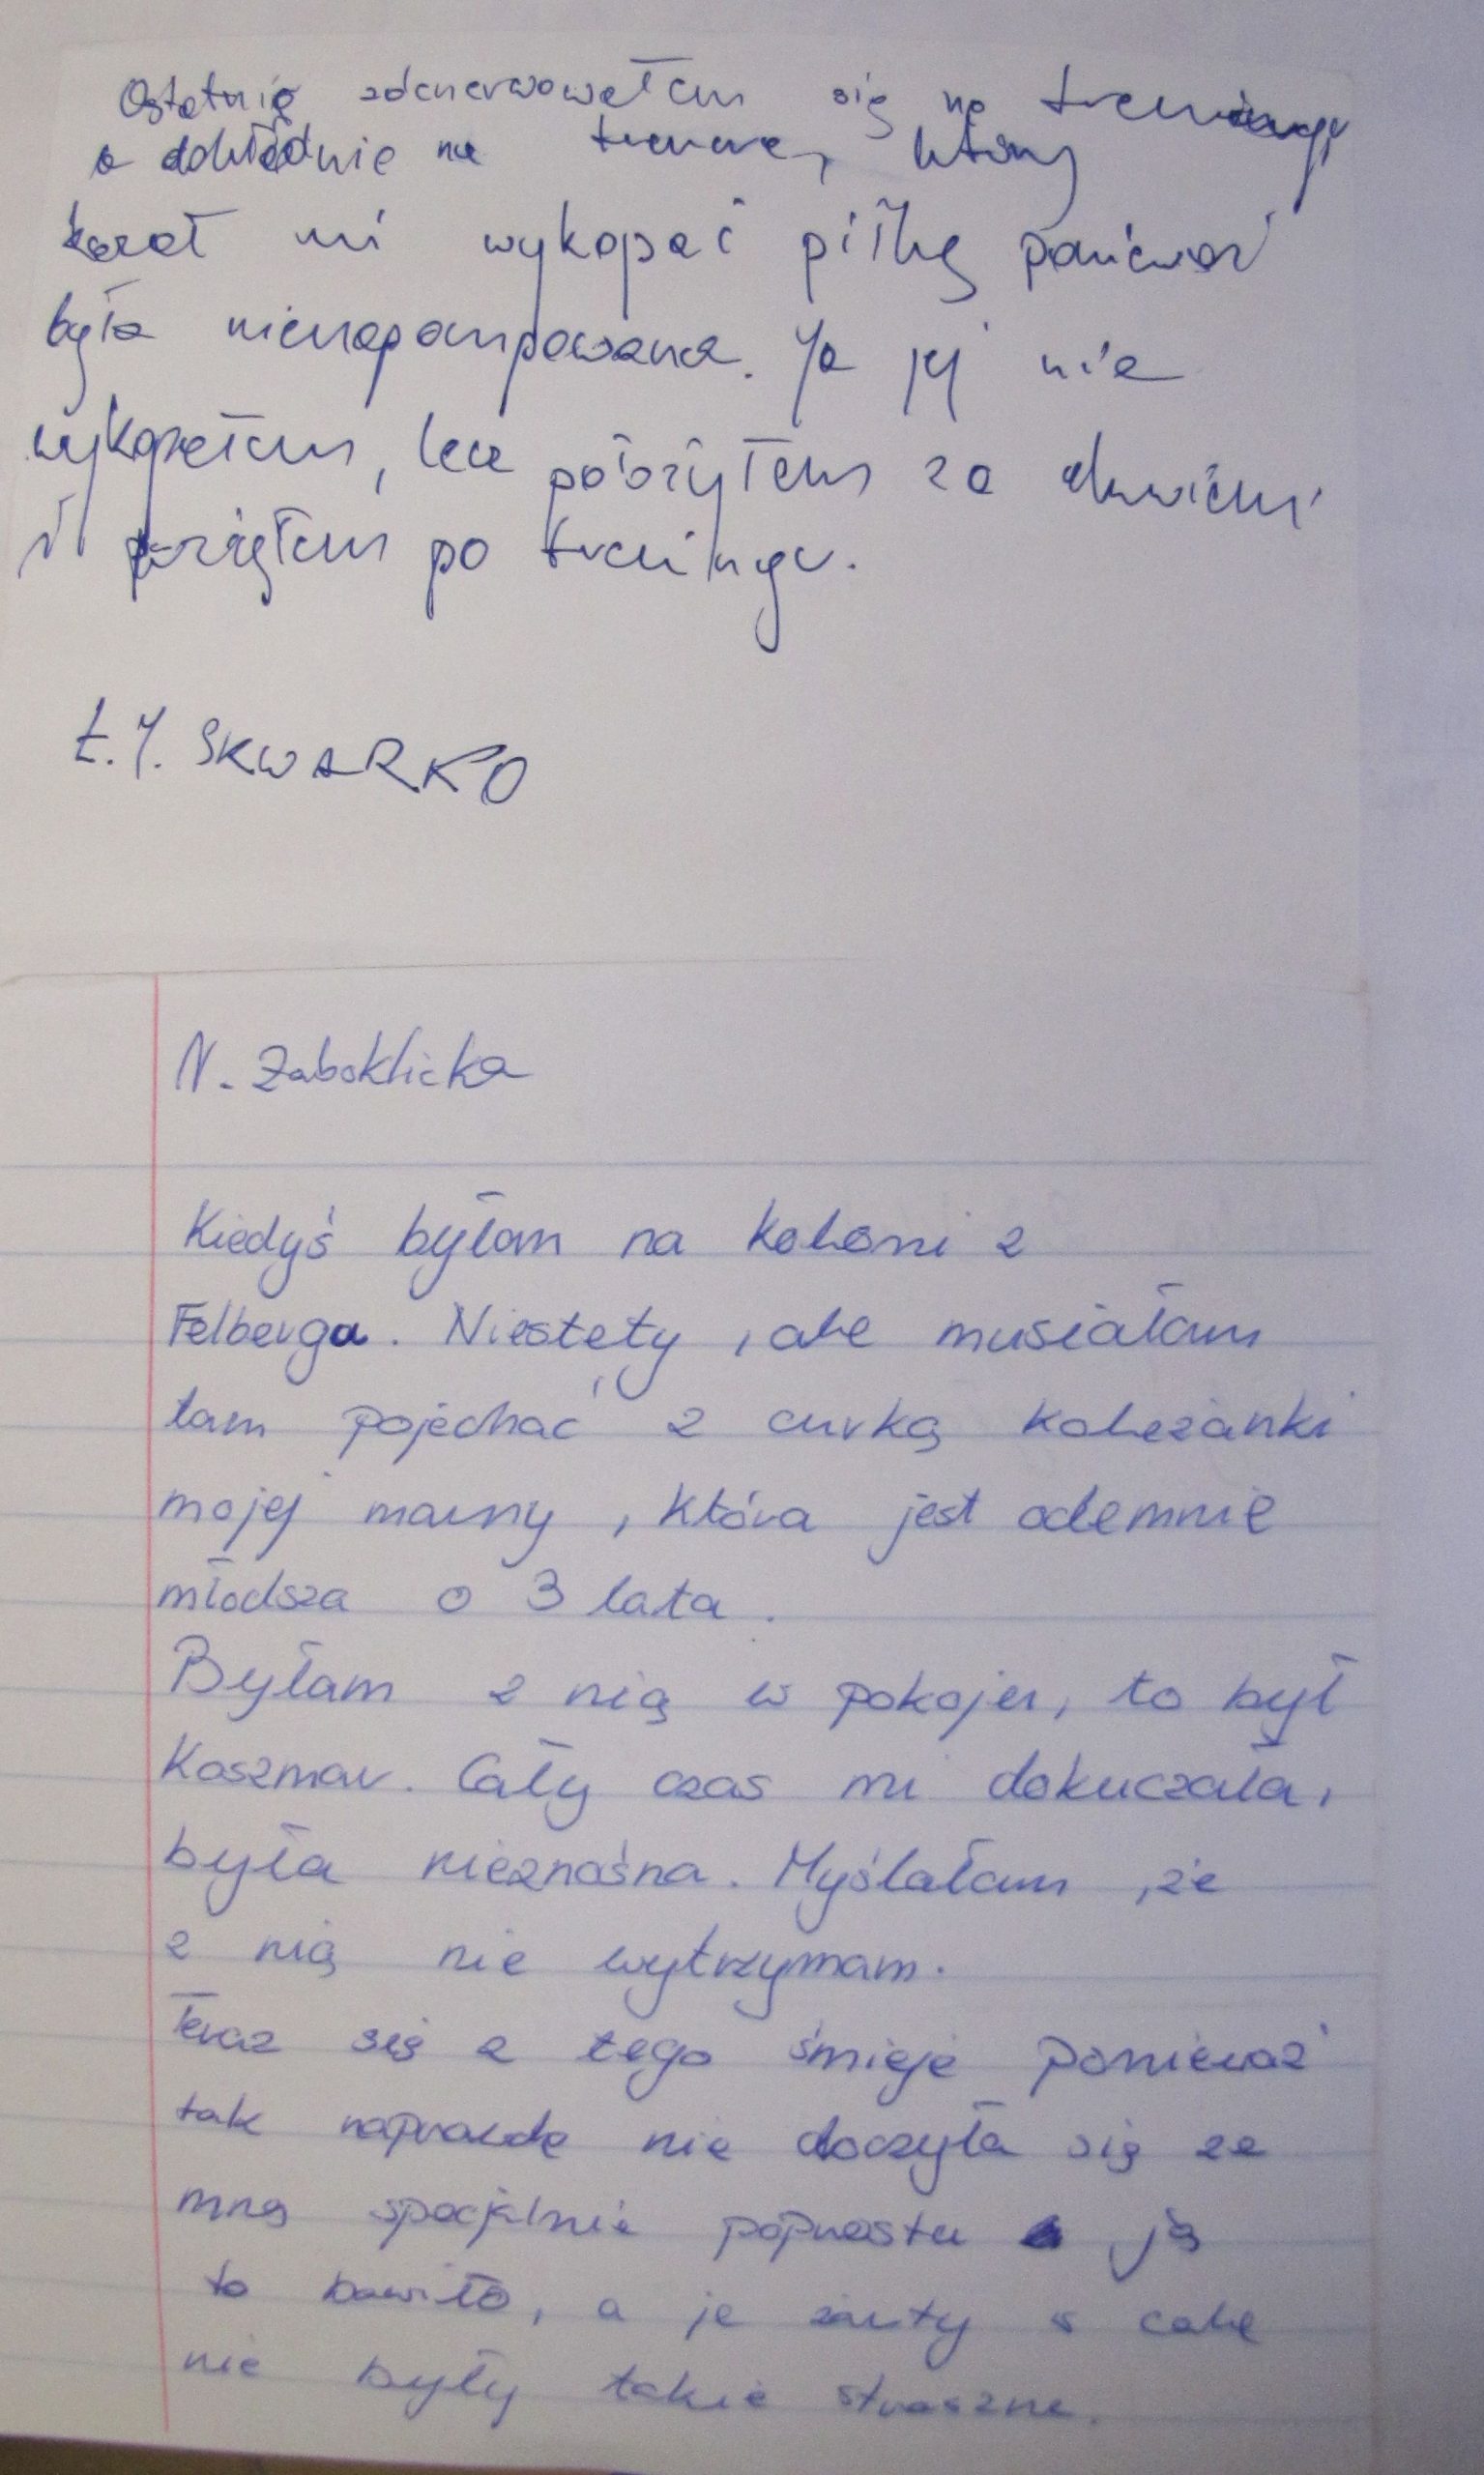 Ostatnio zdenerwowałem się na treningu
a dokładnie na trenera, który
kazał mi wykopać piłkę ponieważ
była nienapompowana. Ja jej nie
wykopałem, lecz położyłem za drzwiami
i wziąłem po treningu.
Ł.J. SKWARKO
N. Zaboklicka
Kiedyś byłam na koloni z
Felberga. Niestety, ale musiałam
tam pojechać z curką koleżanki
mojej mamy, która jest odemnie
młodsza o 3 lata.
Byłam z nią w pokoju, to był
Koszmar. Cały czas mi dokuczała,
była nieznośna. Myślałam, że
z nią nie wytrzymam.
Teraz się z tego śmieje ponieważ
tak naprawdę nie droczyła się ze
mną specjalnie poprostu ją
to bawiło, a je żarty w cale
nie były takie straszne.